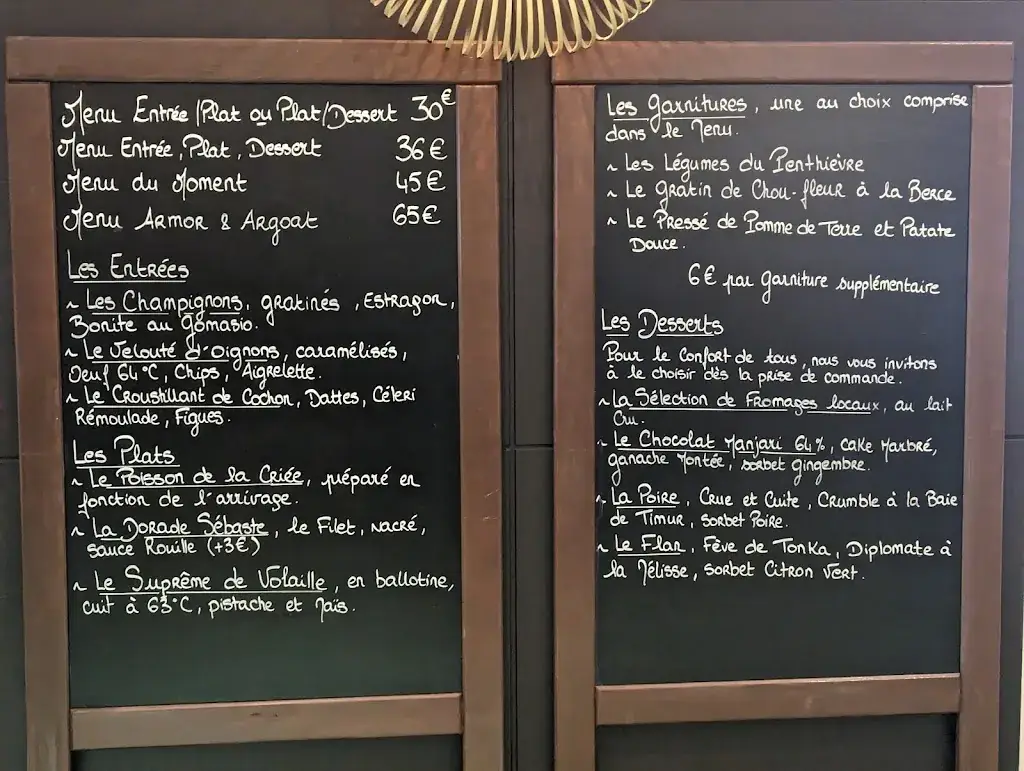 Menu Entrée/Plat ou Plat/Dessert 30€
Menu Entrée, Plat, Dessert 36€
Menu du Moment 45€
Menu ARMOR & ARGOAT 65€
Les Entrées
~ Les Champignons, gratinés, Estragon,
Bonite au Gomasio.
~ Le Velouté d'oignons, caramélisés,
Oeuf 64°C, Chips, Aigrelette.
~ Le Croustillant de Cochon, Dattes, Céleri
Rémoulade, Figues.
Les Plats
~ Le Poisson de la Criée, préparé en
fonction de l'arrivage.
~ La Dorade Sébaste, le Filet, nacré,
sauce Rouille (+3€)
~ Le Suprême de Volaille, en ballotine,
cuit à 63°C, pistache et Maïs.
Les Garnitures, une au choix comprise
dans le Menu.
~ Les Légumes du Penthièvre
~ Le Gratin de Chou-fleur à la Berce
~ Le Pressé de Pomme de Terre et Patate
Douce.
6€ par Garniture supplémentaire
Les Desserts
Pour le Confort de tous, nous vous invitons
à le choisir dès la prise de commande.
~ La Sélection de Fromages locaux, au lait
Cru.
~ Le Chocolat Manjari 64%, Cake Marbré,
ganache Montée, sorbet gingembre.
~ La Poire, Crue et Cuite, Crumble à la Baie
de Timur, sorbet Poire.
~ Le Flan, Fève de Tonka, Diplomate à
la Mélisse, sorbet Citron Vert.